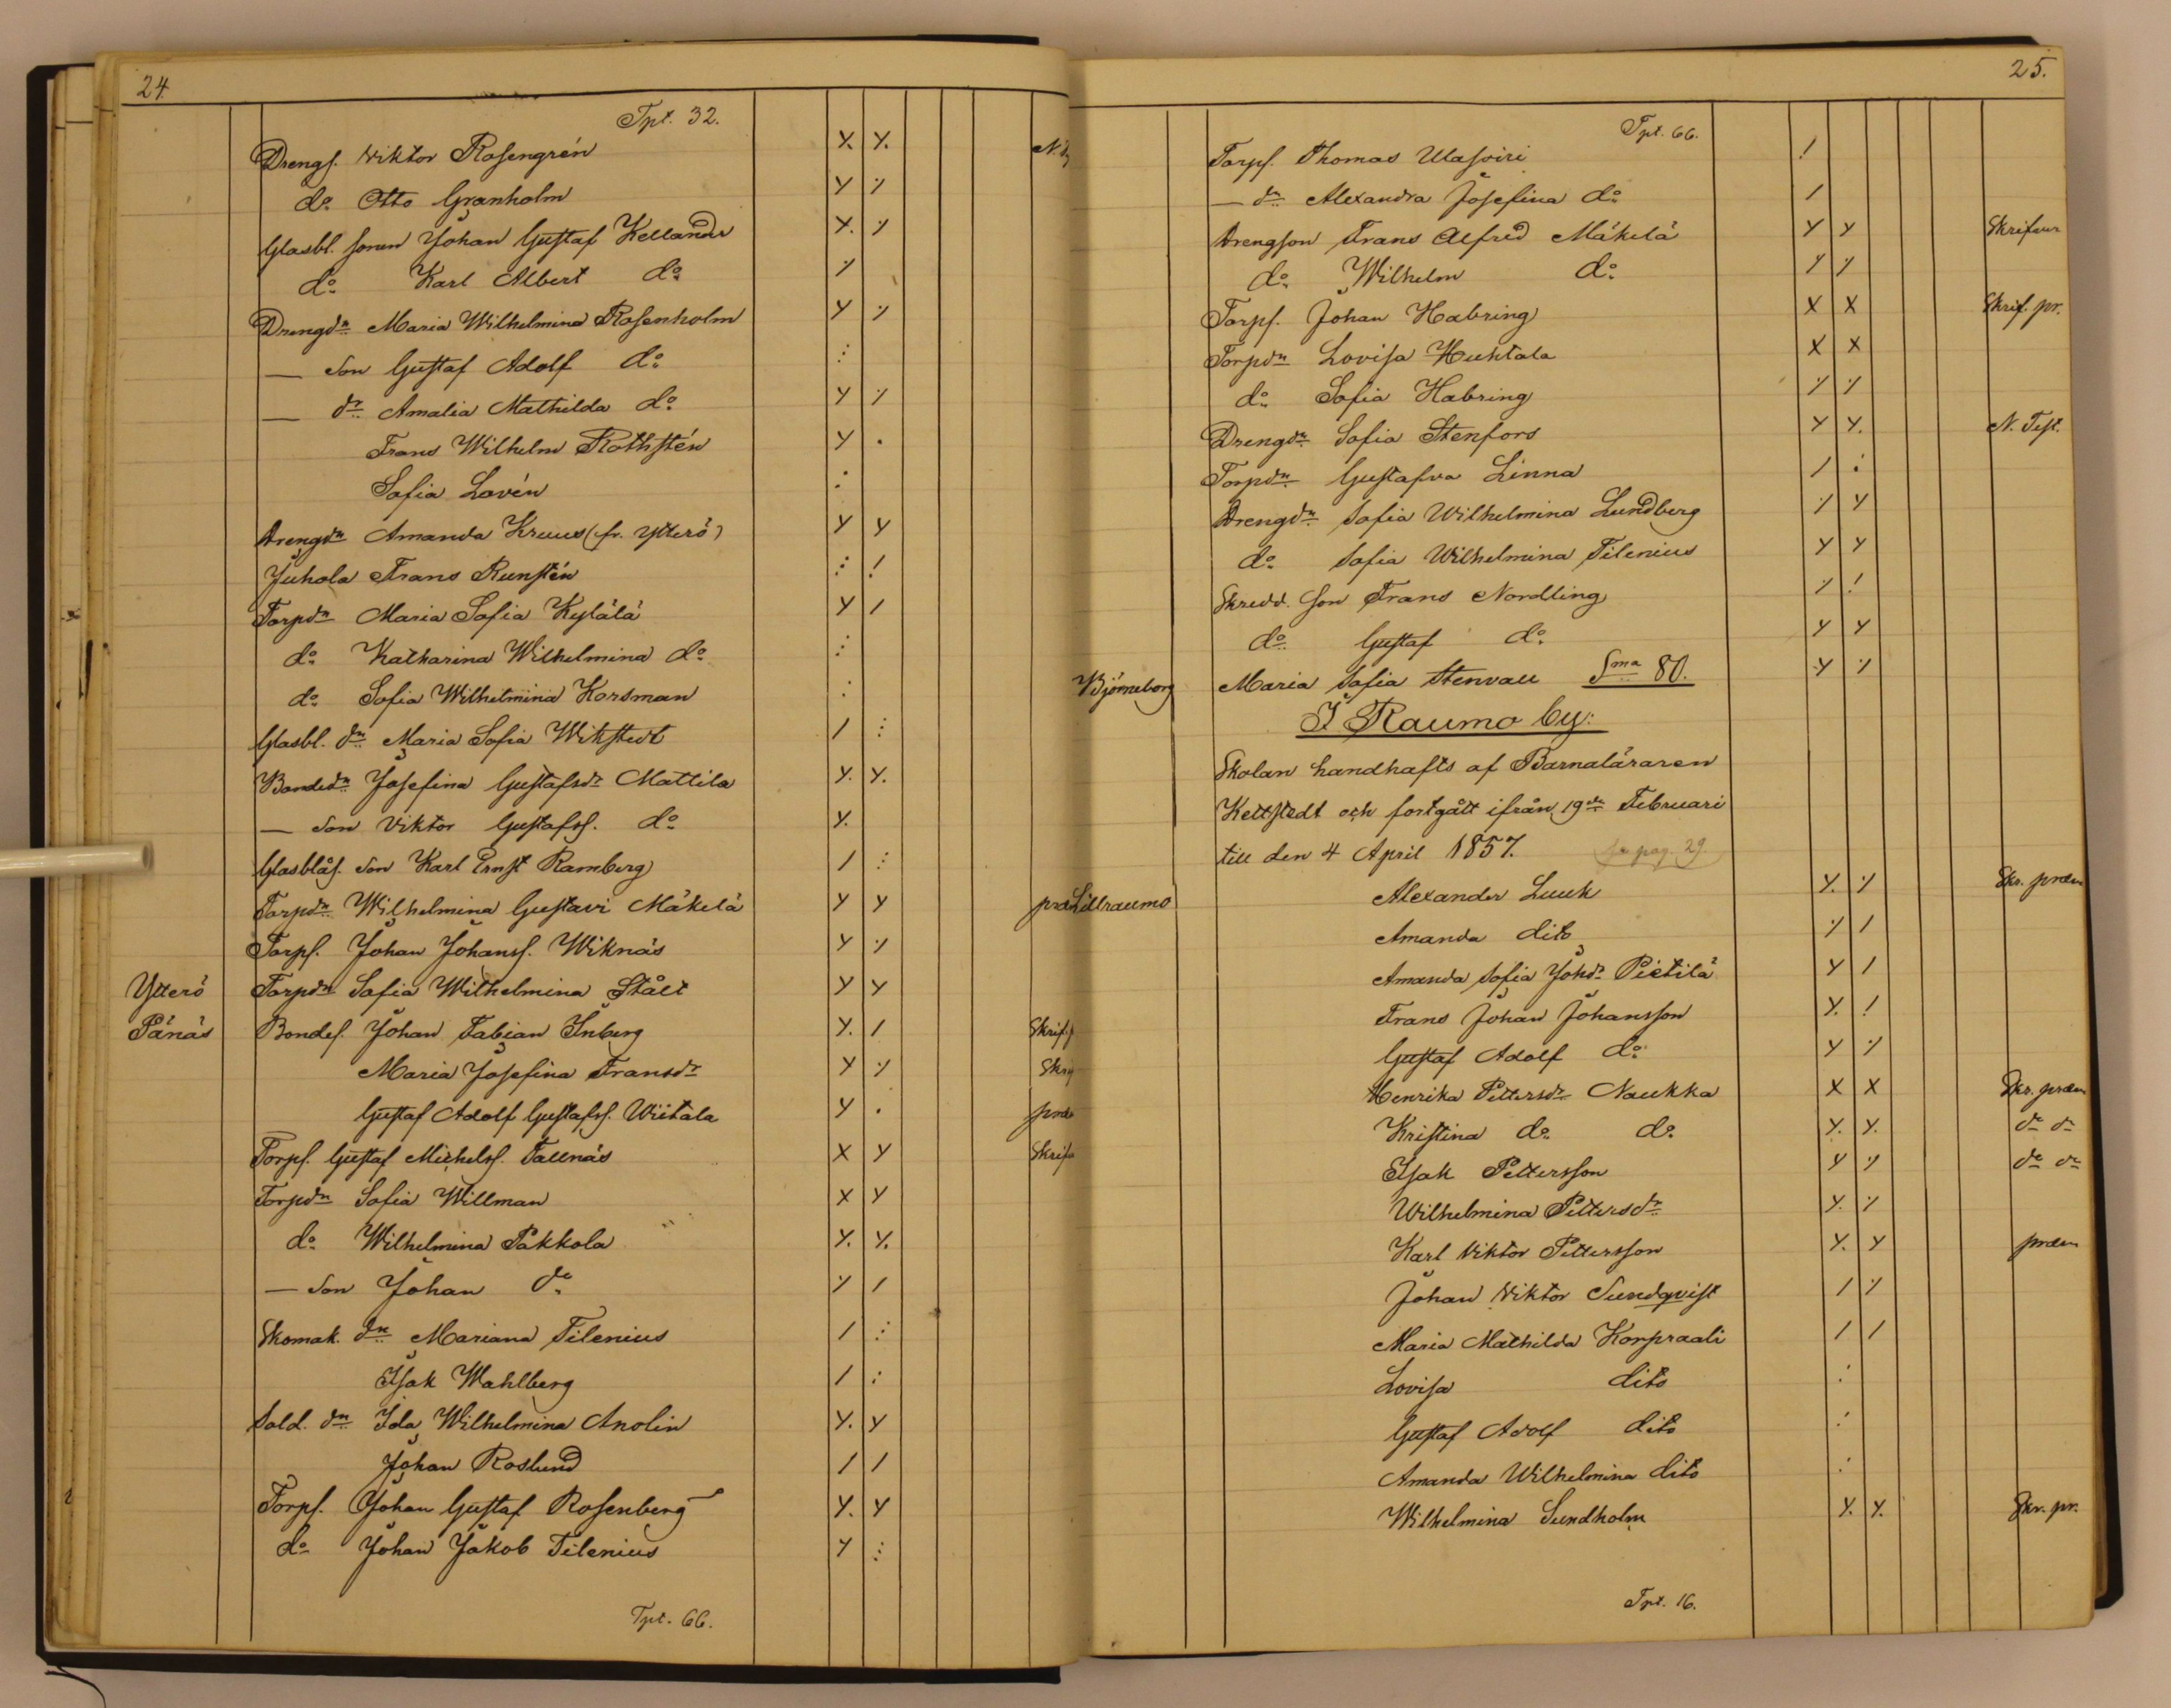 24.
Tpt. 32.
Drengs. Viktor Rosengrén Y. Y. N.
do Otto Granholm
Glasbl. sonen Johan Gustaf Kellander
do Karl Albert do
Drengdn Maria Wilhelmina Rosenholm
— son Gustaf Adolf do
— dr Amalia Mathilda do
Frans Wilhelm Rothstén
Sofia Lovén
Drengdn Amanda Kruus (fr. Ytterö)
Juhola Frans Runstén
Torpdn Maria Sofia Kylälä
do Katharina Wilhelmina do
do Sofia Wilhelmina Korsman
Glasbl. dn Maria Sofia Wikstedt
Bondedn Josefina Gustafsdr Mattila
— son Viktor Gustafss. do
Glasblås. son Karl Ernst Ramberg
Torpdn Wilhelmina Gustavi Mäkelä
Torps. Johan Johanss. Wiknäs
Ytterö Torpdn Sofia Wilhelmina Stålt
Pänäs Bondes. Johan Fabian Inberg Skrif.
Maria Josefina Fransdr Skr
Gustaf Adolf Gustafss. Wiitala
Torps. Gustaf Michelss. Tallnäs Skrif
Torpdn Sofia Willman
do Wilhelmina Pakkola
— son Johan do
Skomak. dn Mariana Tilenius
Isak Wahlberg
Sold. dn Ida Wilhelmina Anolin
Johan Roslund
Torps. Johan Gustaf Rosenberg
do Johan Jakob Tilenius
Tpt. 66.
25.
Tpt. 66.
Torps. Thomas Ulasoiri
— dr Alexandra Josefina do
Drengson Frans Alfred Mäkelä
do Wilhelm do
Torps. Johan Habring Skrif. pr.
Torpdn Lovisa Huhtala
do Sofia Habring
Drengdn Sofia Stenfors N. Test.
Torpdn Gustafva Linna
Drengdn Sofia Wilhelmina Lundberg
do Sofia Wilhelmina Tilenius
Skredd. son Frans Nordling
do Gustaf do
Björneborg Maria Sofia Stenvall Sma 80.
I Raumo by:
Skolan handhafts af Barnaläraren
Kettstedt och fortgått ifrån 19de Februari
till den 4 April 1857. se pag. 29.
Lillraumo Alexander Luuk Skr. præm
Amanda dito
Amanda Sofia Johdr Pietilä
Frans Johan Johansson
Gustaf Adolf do
Henrika Pettersdr Naukka Skr. præm
Kristina do do do do
Isak Pettersson do do
Wilhelmina Pettersdr
Karl Viktor Pettersson præm
Johan Viktor Sundqvist
Maria Mathilda Korpraali
Lovisa dito
Gustaf Adolf dito
Amanda Wilhelmina dito
Wilhelmina Sundholm Skr. pr.
Tpt. 16.